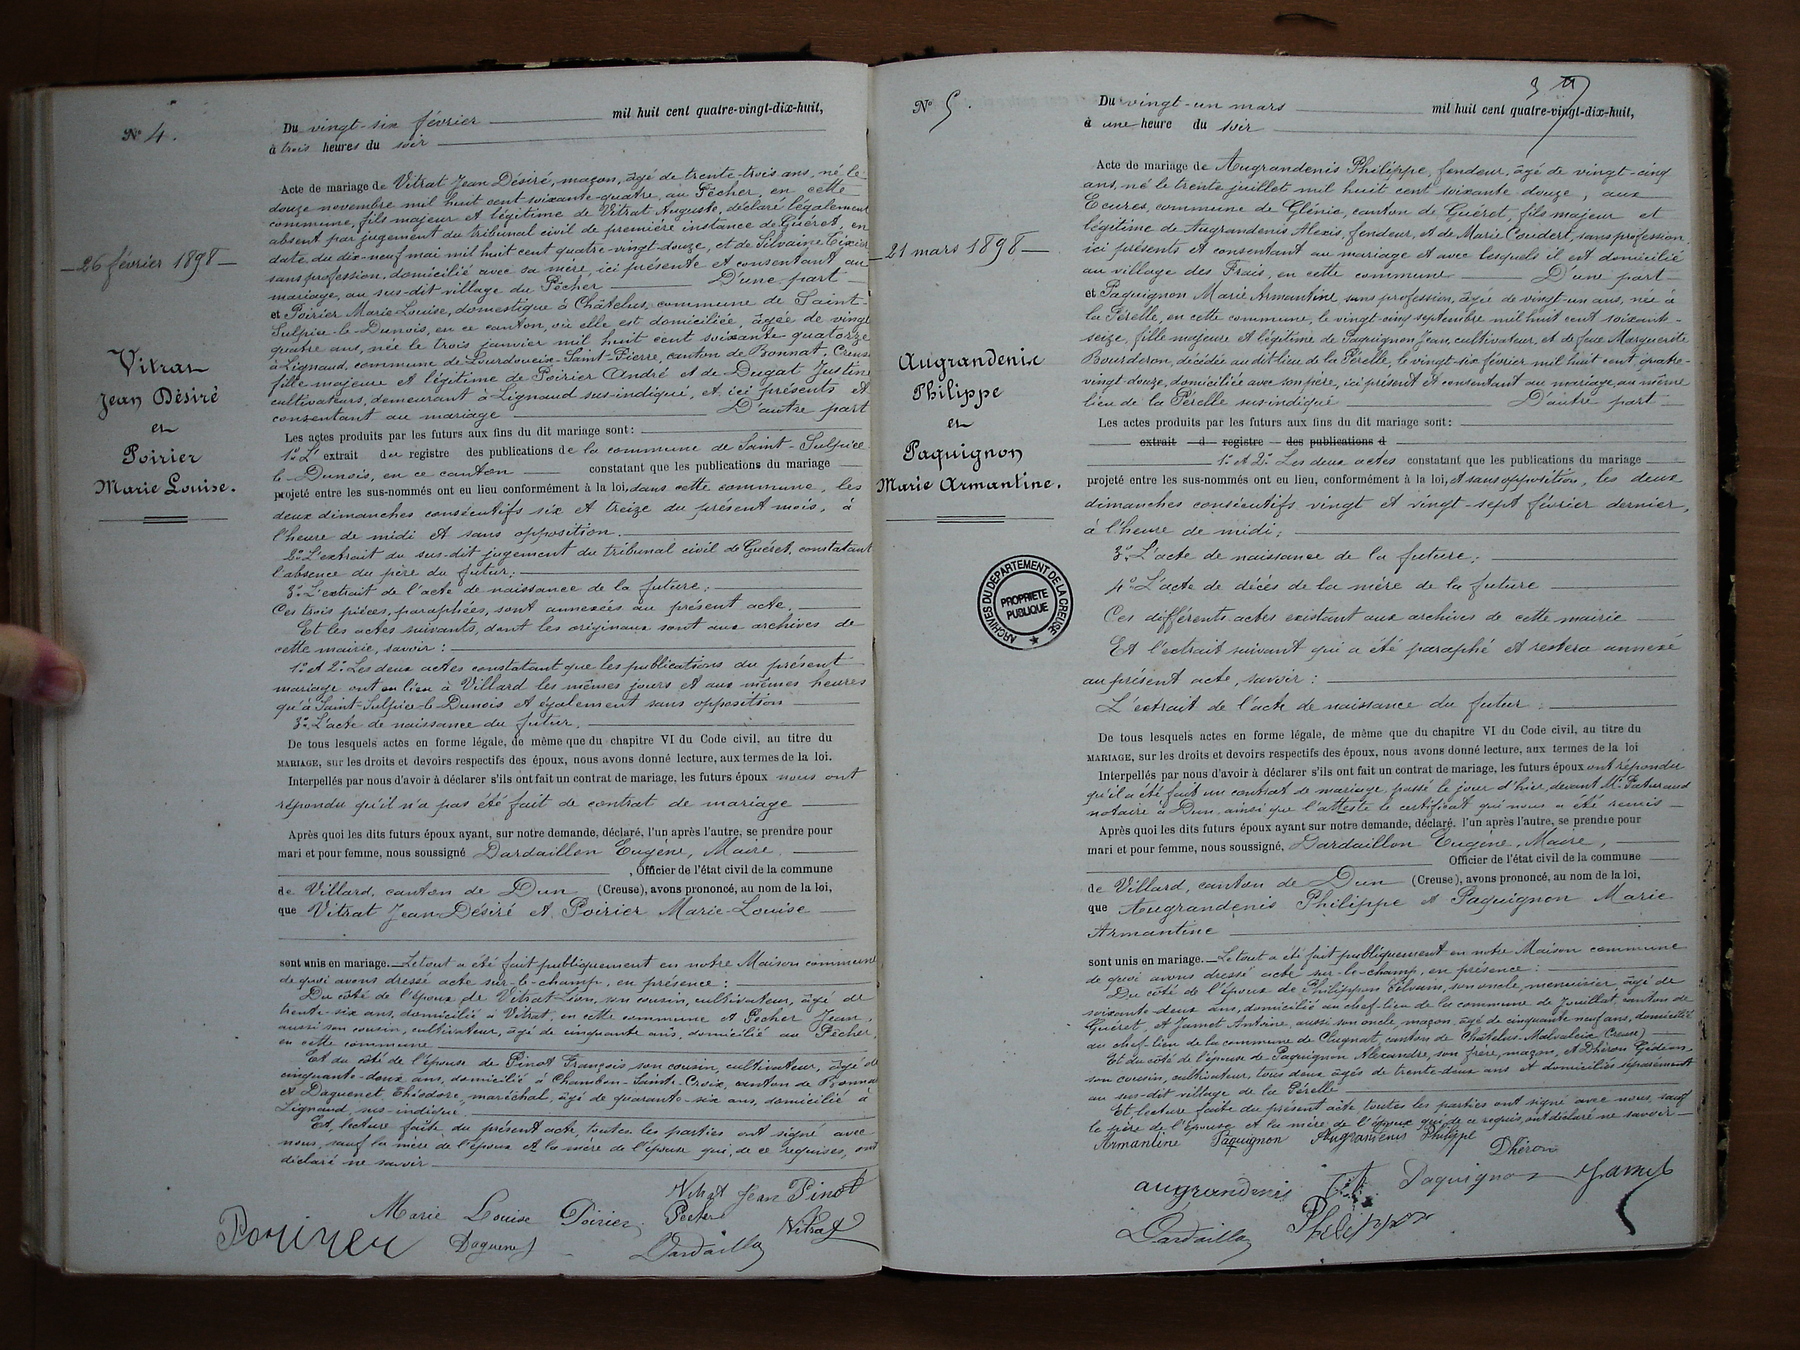 N° 4.
26 février 1898
Vitrat
Jean Désiré
et
Poirier
Marie Louise.
Du vingt-six février mil huit cent quatre-vingt-dix-huit,
à trois heures du soir
Acte de mariage de Vitrat Jean Désiré, maçon, âgé de trente-trois ans, né le
douze novembre mil huit cent soixante-quatre, au Pêcher, en cette
commune, fils majeur et légitime de Vitrat Auguste, déclaré légalement
absent par jugement du tribunal civil de première instance de Guéret, en
date du dix-neuf mai mil huit cent quatre-vingt-douze, et de Silvaine Tixier
sans profession, domicilié avec sa mère, ici présente et consentant au
mariage, au sus-dit village du Pêcher D'une part
et Poirier Marie Louise, domestique à Châtelus, commune de Saint-
Sulpice-le-Dunois, en ce canton, où elle est domiciliée, âgée de vingt
quatre ans, née le trois janvier mil huit cent soixante quatorze
à Lignaud, commune de Lourdoueix-Saint-Pierre, canton de Bonnat, Creuse
fille majeure et légitime de Poirier André et de Dugat Justine
cultivateurs, demeurant à Lignaud sus-indiqué, et ici présents et
consentant au mariage D'autre part
Les actes produits par les futurs aux fins du dit mariage sont :
1° L'extrait du registre des publications de la commune de Saint-Sulpice
le-Dunois, en ce canton constatant que les publications du mariage
projeté entre les sus-nommés ont eu lieu conformément à la loi, dans cette commune, les
deux dimanches consécutifs six et treize du présent mois, à
l'heure de midi et sans opposition.
2° L'extrait du sus-dit jugement du tribunal civil de Guéret, constatant
l'absence du père du futur;
3° L'extrait de l'acte de naissance de la future;
Ces trois pièces, paraphées, sont annexées au présent acte.
Et les actes suivants, dont les originaux sont aux archives de
cette mairie, savoir :
1° et 2° Les deux actes constatant que les publications du présent
mariage ont eu lieu à Villard les mêmes jours et aux mêmes heures
qu'à Saint-Sulpice-le-Dunois et également sans opposition
3° L'acte de naissance du futur.
De tous lesquels actes en forme légale, de même que du chapitre VI du Code civil, au titre du
MARIAGE, sur les droits et devoirs respectifs des époux, nous avons donné lecture, aux termes de la loi.
Interpellés par nous d'avoir à déclarer s'ils ont fait un contrat de mariage, les futurs époux nous ont
répondu qu'il n'a pas été fait de contrat de mariage
Après quoi les dits futurs époux ayant, sur notre demande, déclaré, l'un après l'autre, se prendre pour
mari et pour femme, nous soussigné Dardaillon Eugène, Maire
, Officier de l'état civil de la commune
de Villard, canton de Dun (Creuse), avons prononcé, au nom de la loi,
que Vitrat Jean-Désiré et Poirier Marie-Louise
sont unis en mariage. Le tout a été fait publiquement en notre Maison commune
de quoi avons dressé acte sur-le-champ, en présence :
Du côté de l'époux de Vitrat Léon, son cousin, cultivateur, âgé de
trente-six ans, domicilié à Vitrat, en cette commune et Pecher Jean,
aussi son cousin, cultivateur, âgé de cinquante ans, domicilié au Pêcher,
en cette commune
Et du côté de l'épouse de Pinot François son cousin, cultivateur, âgé de
cinquante-deux ans, domicilié à Chambon-Sainte-Croix, canton de Bonnat
et Daguenet Théodore, maréchal, âgé de quarante-six ans, domicilié à
Lignaud, sus-indiqué.
Et, lecture faite du présent acte, toutes les parties ont signé avec
nous, sauf la mère de l'époux et la mère de l'épouse qui, de ce requises, ont
déclaré ne savoir
Vitrat Jean Pinot
Marie Louise Poirier. Pecher Vitrat
Poirier Daguenet Dardaillon
N° 5.
21 mars 1898
Augrandenis
Philippe
et
Paquignon
Marie Armantine.
ARCHIVES DU DEPARTEMENT DE LA CREUSE
PROPRIETE
PUBLIQUE
Du vingt-un mars mil huit cent quatre-vingt-dix-huit,
à une heure du soir
Acte de mariage de Augrandenis Philippe, fondeur, âgé de vingt-cinq
ans, né le trente juillet mil huit cent soixante-douze, aux
Ecures, commune de Glénic, canton de Guéret, fils majeur et
légitime de Augrandenis Alexis, fondeur, et de Marie Coudert, sans profession,
ici présents et consentant au mariage et avec lesquels il est domicilié
au village des Frais, en cette commune D'une part
et Paquignon Marie Armantine, sans profession, âgée de vingt-un ans, née à
la Pérelle, en cette commune, le vingt-cinq septembre mil huit cent soixante-
seize, fille majeure et légitime de Paquignon Jean, cultivateur, et de feue Marguerite
Bourderon, décédée au dit lieu de la Pérelle, le vingt-six février mil huit cent quatre-
vingt-douze, domiciliée avec son père, ici présent et consentant au mariage, au même
lieu de la Pérelle sus-indiqué D'autre part
Les actes produits par les futurs aux fins du dit mariage sont :
extrait d registre des publications d
1° et 2° Les deux actes constatant que les publications du mariage
projeté entre les sus-nommés ont eu lieu, conformément à la loi, et sans opposition, les deux
dimanches consécutifs vingt et vingt-sept février dernier,
à l'heure de midi;
3° L'acte de naissance de la future;
4° L'acte de décès de la mère de la future
Ces différents actes existant aux archives de cette mairie
Et l'extrait suivant qui a été paraphé et restera annexé
au présent acte, savoir :
L'extrait de l'acte de naissance du futur
De tous lesquels actes en forme légale, de même que du chapitre VI du Code civil, au titre du
MARIAGE, sur les droits et devoirs respectifs des époux, nous avons donné lecture, aux termes de la loi
Interpellés par nous d'avoir à déclarer s'ils ont fait un contrat de mariage, les futurs époux ont répondu
qu'il a été fait un contrat de mariage passé le jour d'hier, devant Me Paturaud
notaire à Dun, ainsi que l'atteste le certificat qui nous a été remis
Après quoi les dits futurs époux ayant sur notre demande, déclaré, l'un après l'autre, se prendre pour
mari et pour femme, nous soussigné, Dardaillon Eugène, Maire,
Officier de l'état civil de la commune
de Villard, canton de Dun (Creuse), avons prononcé, au nom de la loi,
que Augrandenis Philippe et Paquignon Marie
Armantine
sont unis en mariage. Le tout a été fait publiquement en notre Maison commune
de quoi avons dressé acte sur-le-champ, en présence :
Du côté de l'époux de Philippon Silvain, son oncle, menuisier, âgé de
soixante-deux ans, domicilié au chef-lieu de la commune de Jouillat, canton de
Guéret, et Jamet Antoine, aussi son oncle, maçon, âgé de cinquante neuf ans, domicilié
au chef-lieu de la commune de Clugnat, canton de Châtelus-Malvaleix (Creuse)
Et du côté de l'épouse de Paquignon Alexandre, son frère, maçon, et Dhéron Gédéon,
son cousin, cultivateur, tous deux âgés de trente-deux ans et domiciliés séparément
au sus-dit village de la Pérelle
Et lecture faite du présent acte, toutes les parties ont signé avec nous, sauf
le père de l'épouse et la mère de l'époux qui, de ce requis, ont déclaré ne savoir
Armantine Paquignon Augrandenis Philippe Dhéron
augrandenis Paquignon Jamet
Dardaillon Philippon